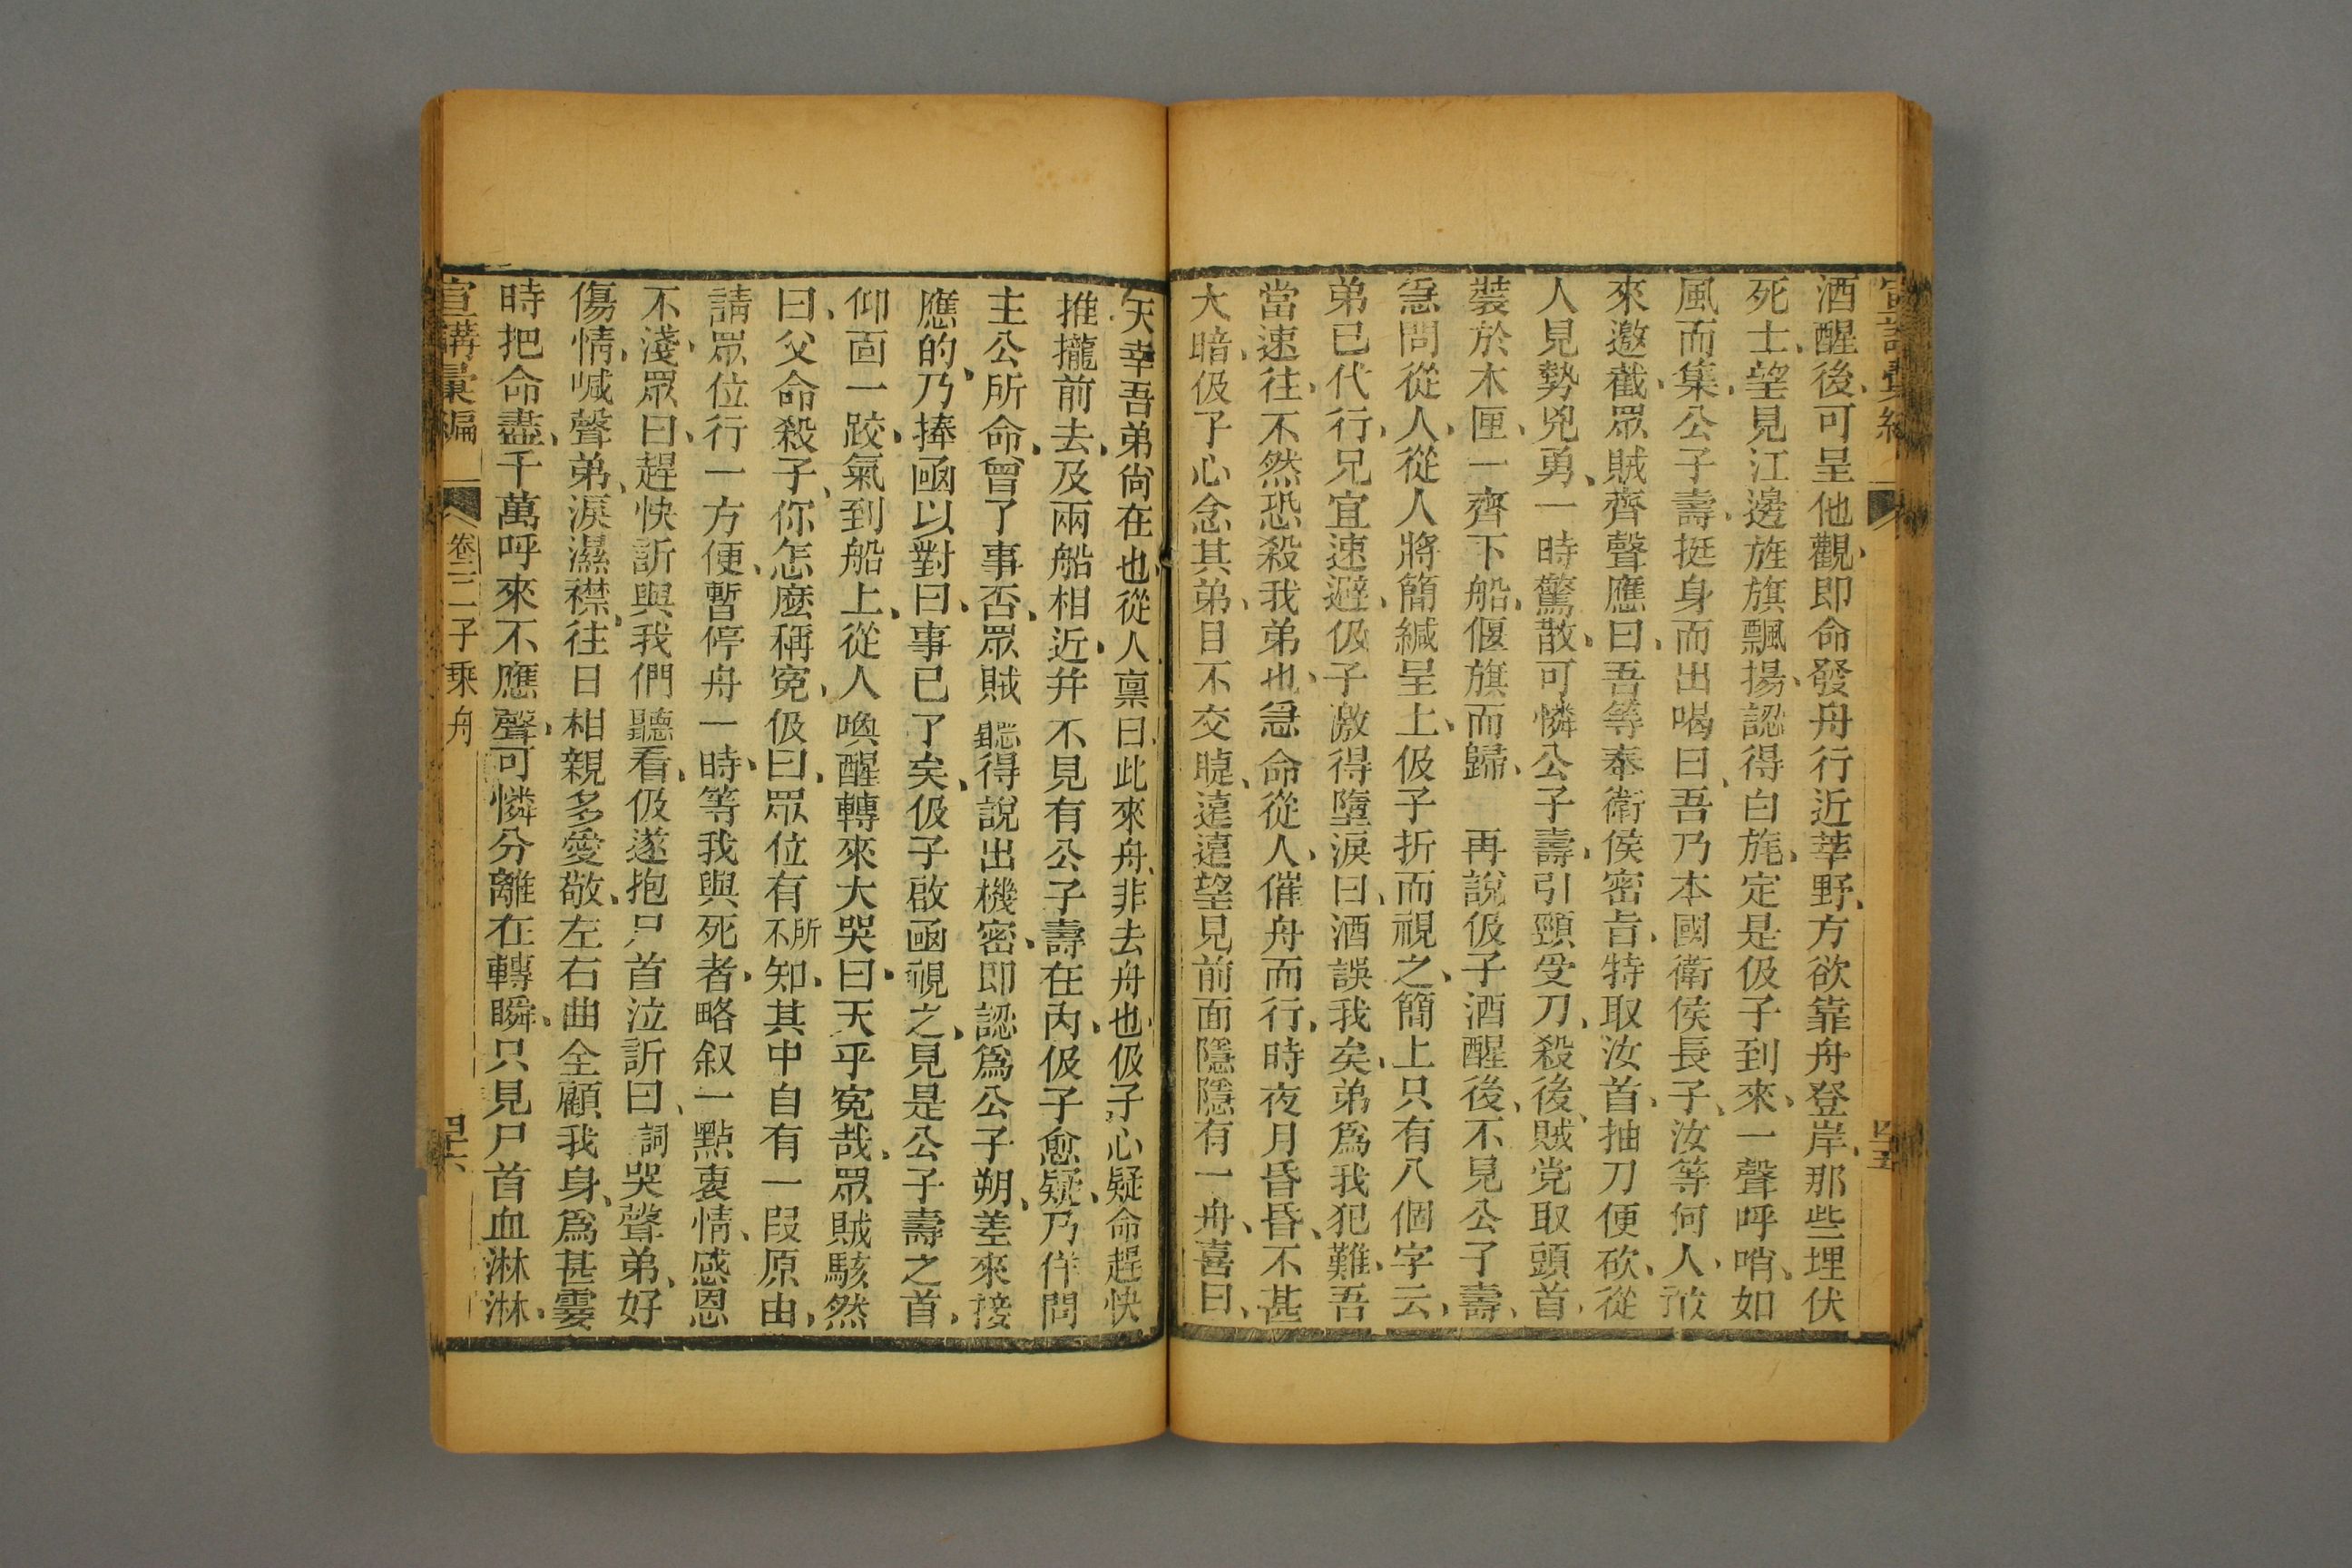 宣講彙編
四十五
酒醒後、可呈他觀、即命發舟行近莘野、方欲靠舟登岸、那些埋伏
死士、望見江邊旌旗飄揚、認得白旄、定是伋子到來、一聲呼哨、如
風而集、公子壽、挺身而出喝曰、吾乃本國衛侯長子、汝等何人、敢
來邀截、眾賊齊聲應曰、吾等奉衛侯密旨、特取汝首、抽刀便砍、從
人見勢兇勇、一時驚散、可憐公子壽、引頸受刀、殺後、賊党取頭首、
裝於木匣、一齊下船、偃旗而歸、　再說伋子酒醒後、不見公子壽、
急問從人、從人將簡緘呈上、伋子折而視之、簡上只有八個字云、
弟已代行、兄宜速避、伋子激得墮淚曰、酒誤我矣、弟爲我犯難、吾
當速往、不然恐殺我弟也、急命從人、催舟而行、時夜月昏昏、不甚
大暗、伋子心念其弟、目不交睫、遠遠望見前面隱隱有一舟、喜曰、
天幸吾弟尙在也、從人稟曰、此來舟、非去舟也、伋子心疑、命趕快
推攏前去、及兩船相近、幷不見有公子壽在內、伋子愈疑、乃佯問
主公所命、曾了事否、眾賊聽得說出機密、即認爲公子朔、差來接
應的、乃捧凾以對曰、事已了矣、伋子啟凾視之、見是公子壽之首、
仰面一跤、氣到船上、從人喚醒轉來大哭曰、天乎寃哉、眾賊駭然
曰、父命殺子、你怎麽稱寃、伋曰、眾位有所不知、其中自有一叚原由、
請眾位行一方便、暫停舟一時、等我與死者、略叙一點衷情、感恩
不淺、眾曰、趕快訴與我們聽看、伋遂抱尸首泣訴曰、詞哭聲弟、好
傷情、喊聲弟、淚濕襟、往日相親多愛敬、左右曲全顧我身、爲甚霎
時把命盡、千萬呼來不應聲、可憐分離在轉瞬、只見尸首血淋淋、
宣講彙編
卷三 二子乘舟
四十六